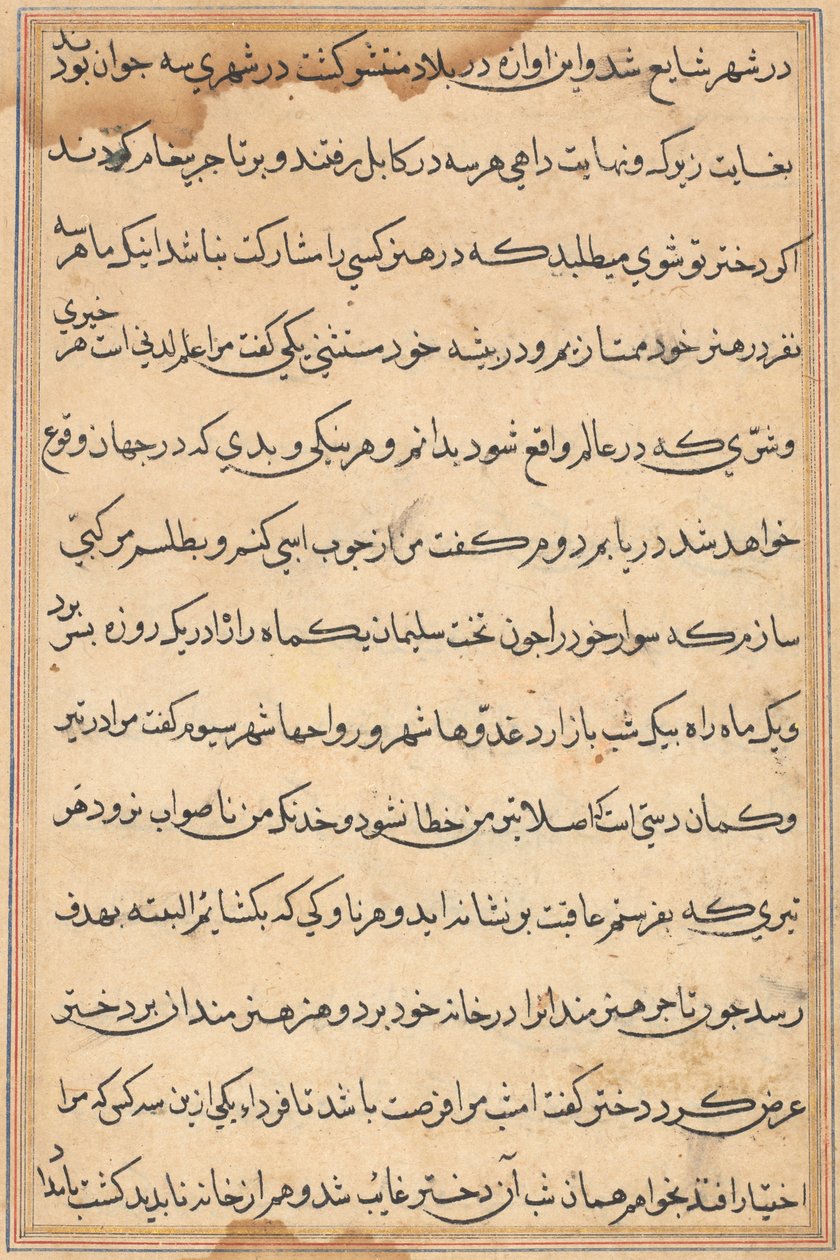 در شهر شایع شد و این اوازه در بلاد منتشر کشت در شهري سه جوان بودند
بغایت زیرک و نهایت داهي هر سه در کابل رفتند و بر تاجر پیغام کردند
اکر دختر تو شوي میطلبد که در هنر کسي را مشارکت نباشد اینک ما هر سه
نفر در هنر خود ممتازیم و در پیشه خود مستثنی یکي کفت مرا علم لدني است هر خیري
و شرّي که در عالم واقع شود بدانم و هر نیکي و بدي که در جهان وقوع
خواهد شد دریابم دوم کفت من از جوب اسپي کنم و بطلسم مرکبي
سازم که سوار خود را جون تخت سلیمان یکماه راه را در یک روزه ببرد
و یک ماه راه بیک شب باز ارد غدوّها شهر و رواحها شهر سیوم کفت مرا در تیر
و کمان دستي است که اصلا تیر من خطا نشود و خدنک من ناصواب نرود هر
تیري که بفرستم عاقبت بر نشانه اید و هر ناوکي که بکشایم البته بهدف
رسد جون تاجر هنرمندانرا در خانه خود برد و هنر هنرمندان بر دختر
عرض کرد دختر کفت امشب مرا فرصت باشد تا فردا یکي از ین سه کس که مرا
اختیار افتد بخواهم همان شب آن دختر غایب شد و هم از خانه ناپدید کشت بامداد